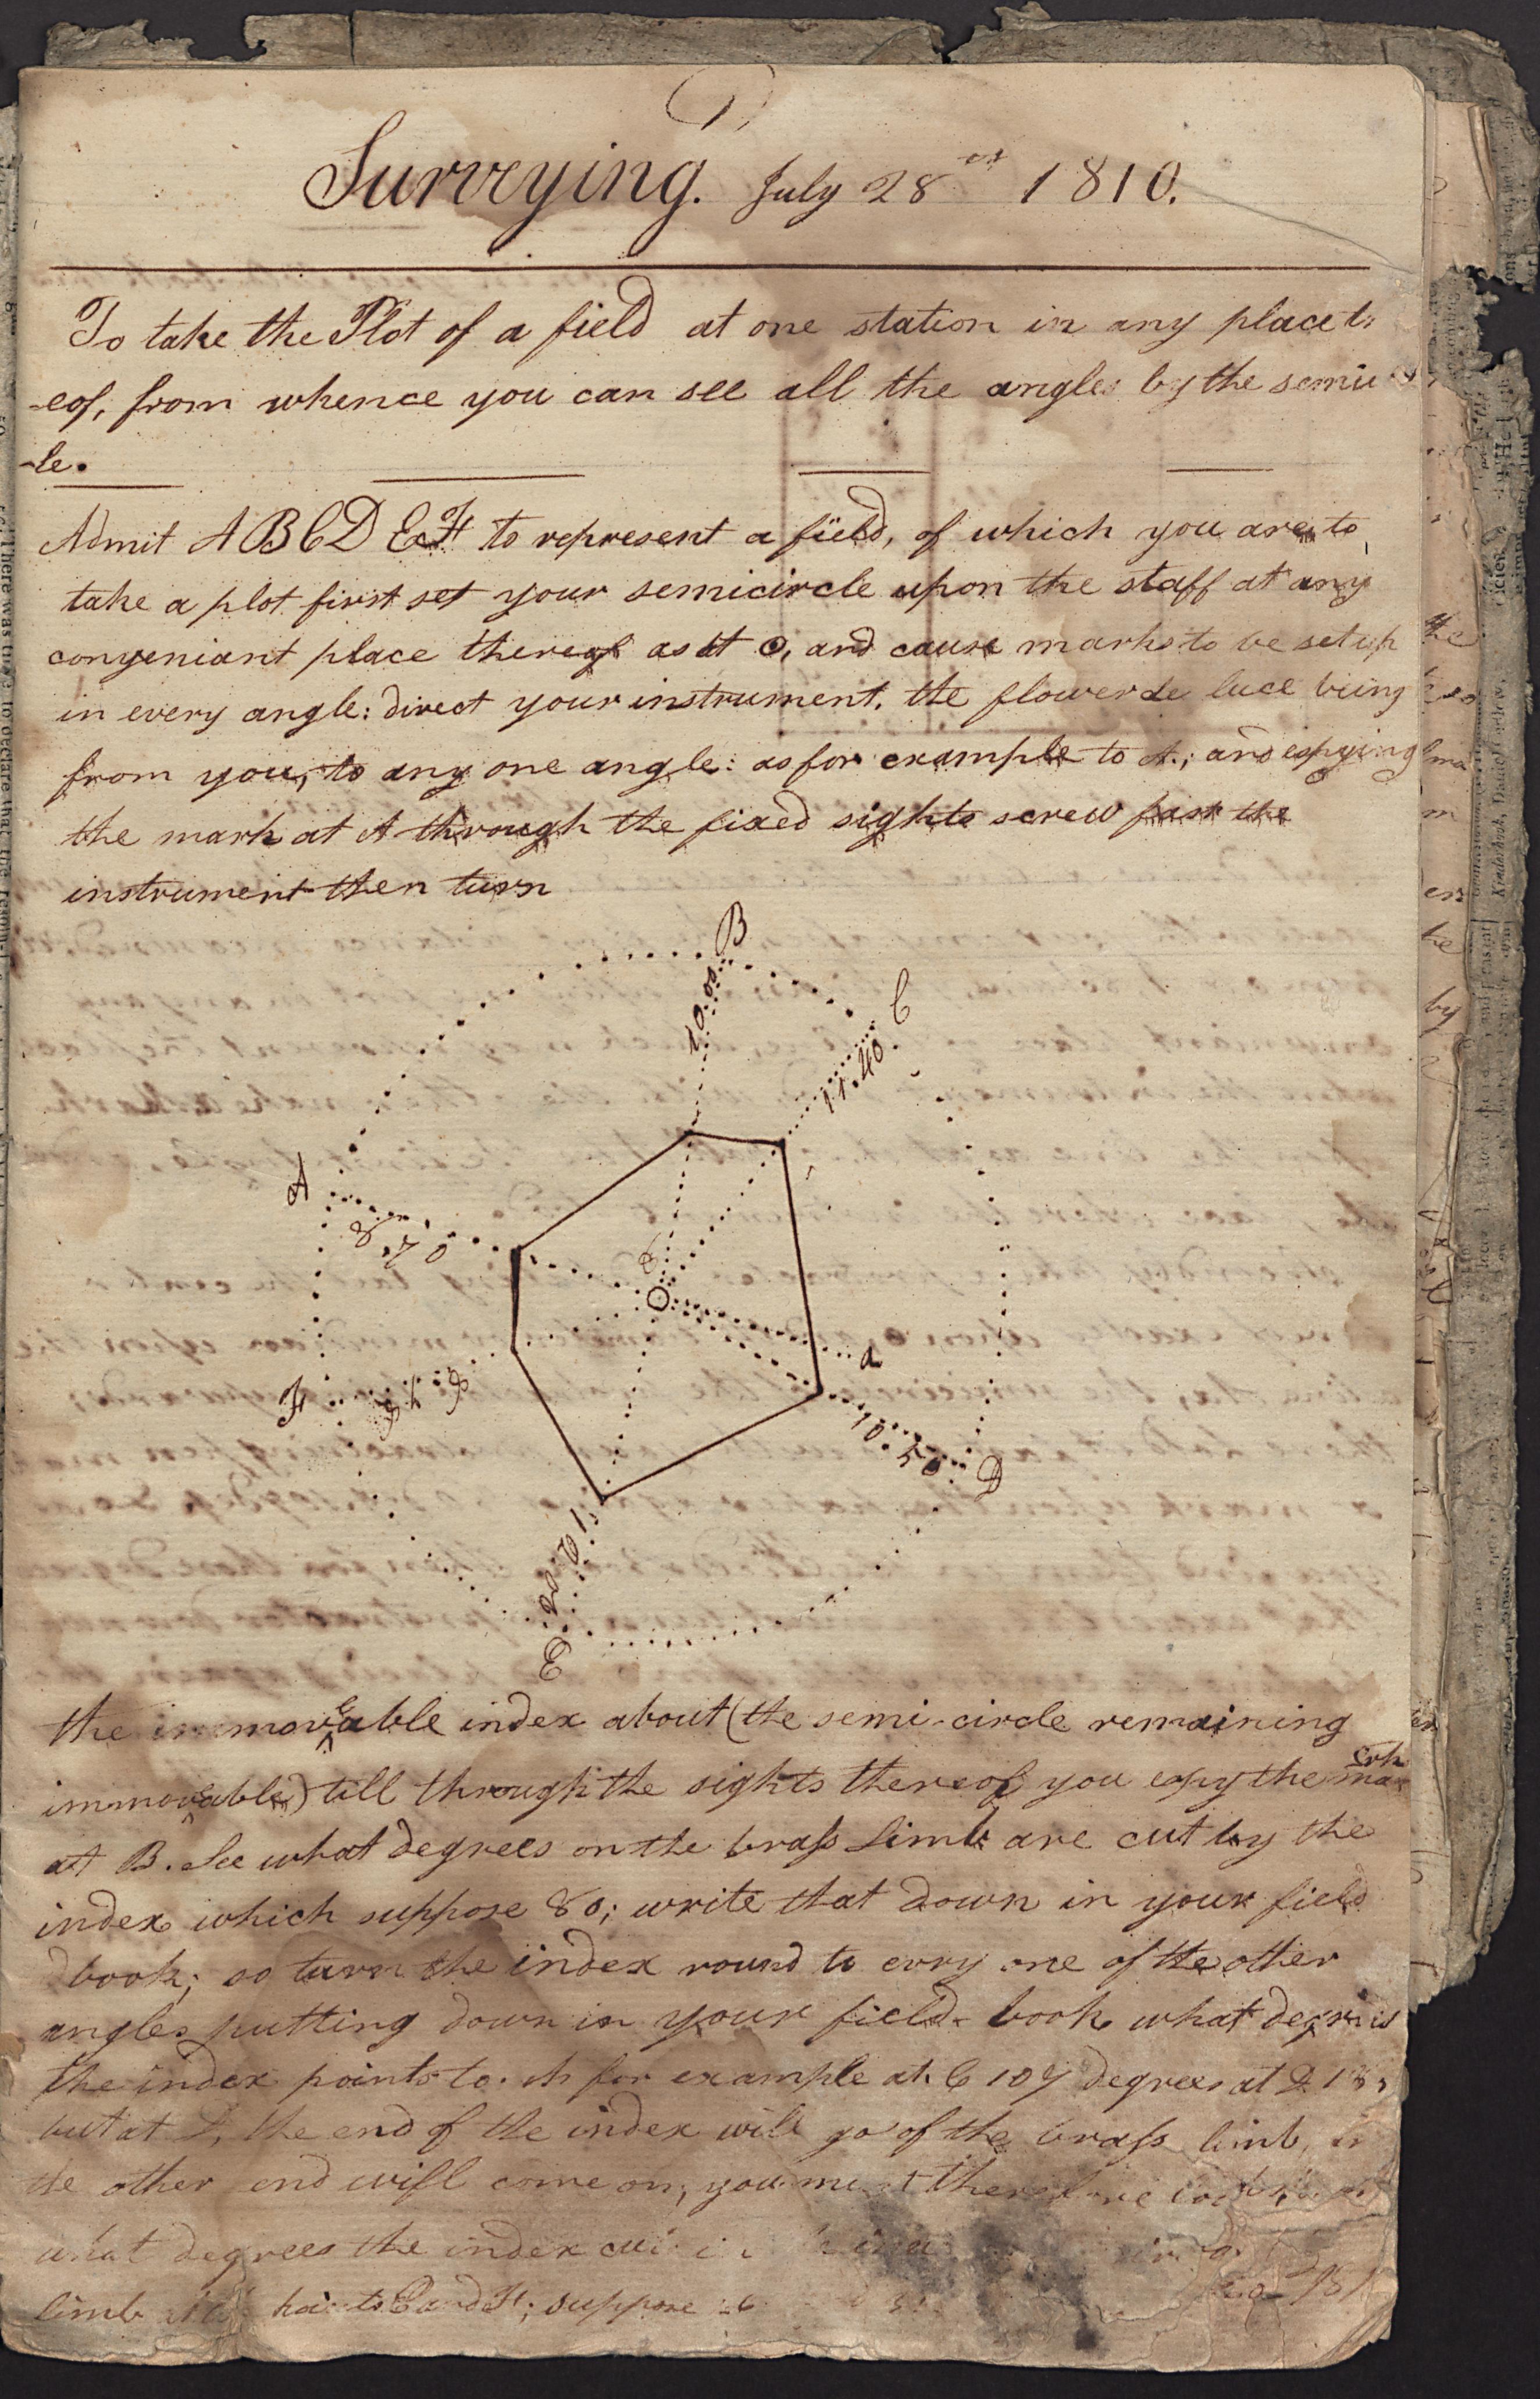 Surveying. July 28th 1810.
To take the Plot of a field at one station in any place th
-eof, from whence you can see all the angles by the semic
-le.
Admit A B C D E F to represent a field, of which you are to
take a plot first set your semicircle upon the staff at any
conveniant place thereof as at O, and cause marks to be set up
in every angle: direct your instrument, the flower de luce being
from you, to any one angle: as for example to A; and espying
the mark at A through the fixed sights screw fast the
instrument then turn
B
10.00
C
11.40
A
8.70
O
a
F
8.78
10.50
D
12.00
E
the immoveable index about (the semi-circle remaining
immoveable) till through the sights thereof you espy the mark
at B. See what degrees on the brass limb are cut by the
index which suppose 80; write that down in your field
book; so turn the index round to evry one of the other
angles putting down in your field-book what degris
the index points to. As for example at C 107 degrees at D 185
but at D, the end of the index will go of the brass limb,
the other end will come on, you must therefore
what degrees the index
limb E and F; suppose